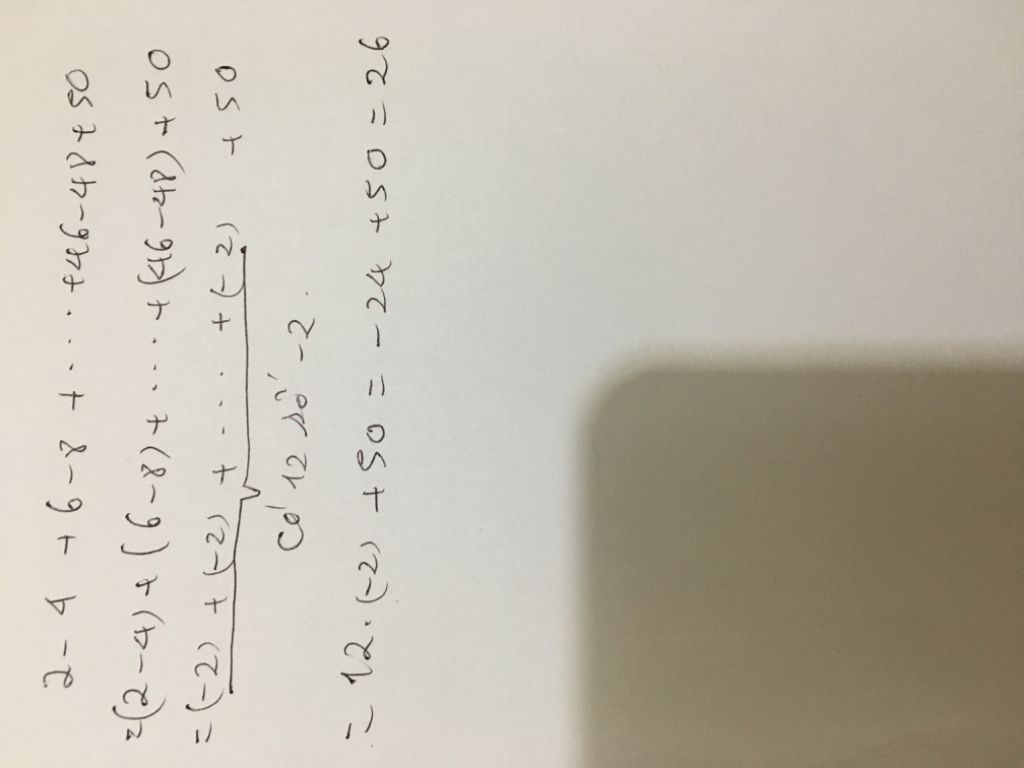 2 - 4 + 6 - 8 + ... + 46 - 48 + 50
= (2 - 4) + (6 - 8) + .... + (46 - 48) + 50
= (-2) + (-2) + .... + (-2) + 50
Có 12 số -2.
= 12.(-2) + 50 = -24 + 50 = 26